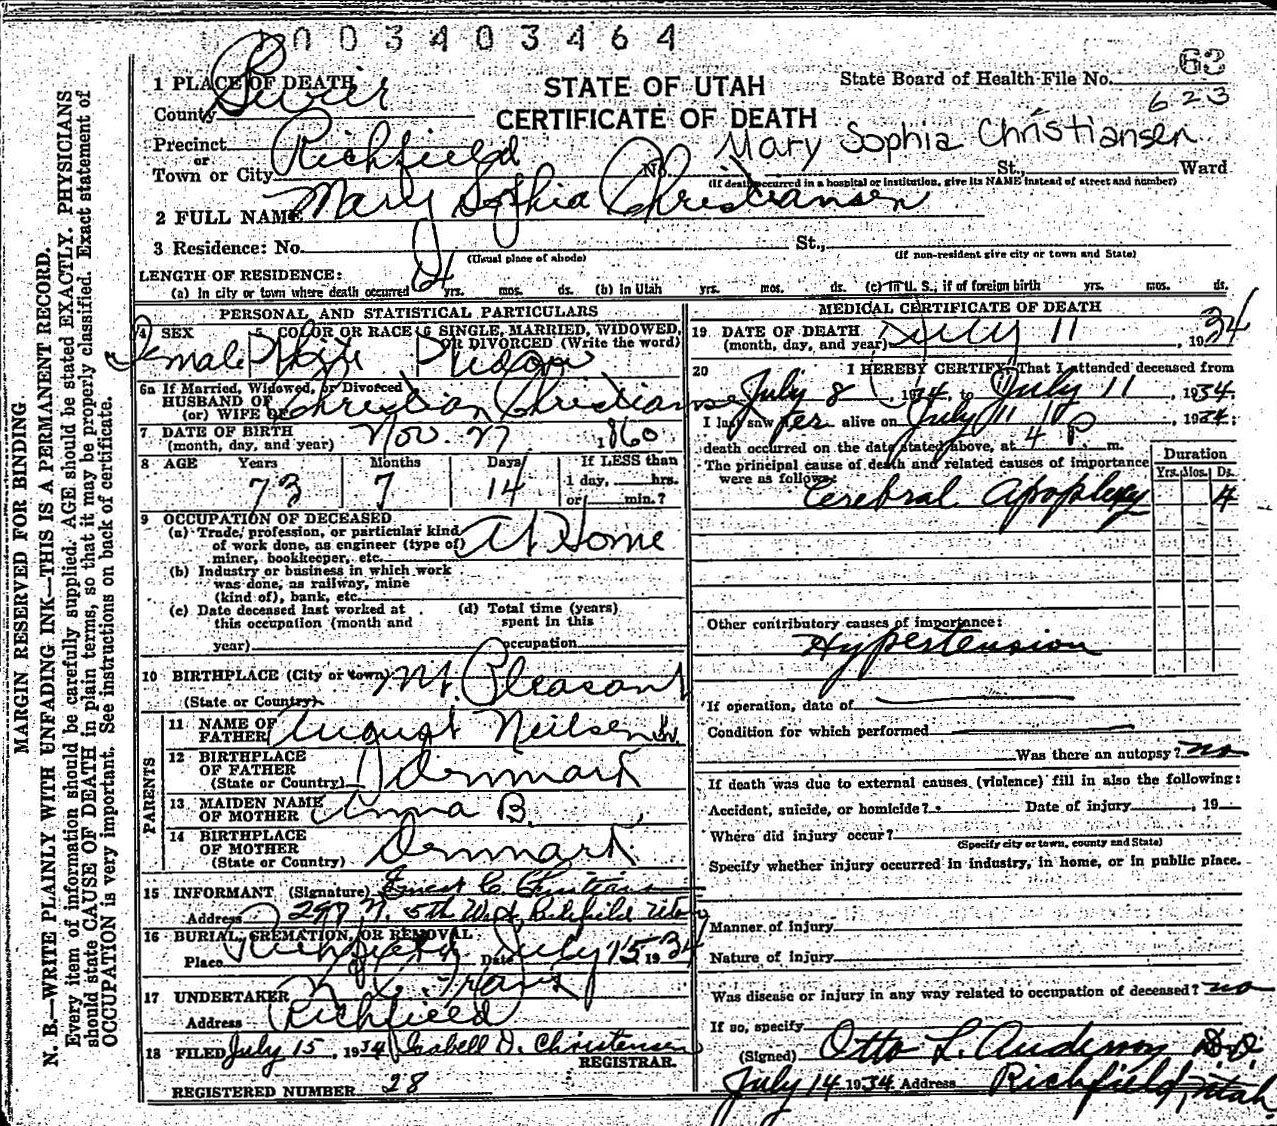 0003403464
1 PLACE OF DEATH
County Sevier
STATE OF UTAH
CERTIFICATE OF DEATH
State Board of Health File No. 63
623
Precinct
or
Town or City Richfield
Mary Sophia Christiansen
No. St., Ward
(If death occurred in a hospital or institution, give its NAME instead of street and number)
2 FULL NAME Mary Sophia Christiansen
3 Residence: No. St.,
(Usual place of abode) (If non-resident give city or town and State)
LENGTH OF RESIDENCE:
(a) In city or town where death occurred yrs. mos. ds. (b) In Utah yrs. mos. ds. (c) In U. S., if of foreign birth yrs. mos. ds.
PERSONAL AND STATISTICAL PARTICULARS
4 SEX 5 COLOR OR RACE 6 SINGLE, MARRIED, WIDOWED, OR DIVORCED (Write the word)
Female White Widow
6a If Married, Widowed, or Divorced
HUSBAND OF
(or) WIFE OF Christian Christiansen
7 DATE OF BIRTH
(month, day, and year) Nov. 27 1860
8 AGE Years Months Days If LESS than
73 7 14 1 day, hrs.
or min.?
9 OCCUPATION OF DECEASED
(a) Trade, profession, or particular kind
of work done, as engineer (type of)
miner, bookkeeper, etc. At Home
(b) Industry or business in which work
was done, as railway, mine
(kind of), bank, etc.
(c) Date deceased last worked at
this occupation (month and
year)
(d) Total time (years)
spent in this
occupation
10 BIRTHPLACE (City or town) Mt. Pleasant
(State or Country)
PARENTS
11 NAME OF
FATHER August Neilsen
12 BIRTHPLACE
OF FATHER
(State or Country) Denmark
13 MAIDEN NAME
OF MOTHER Anna B.
14 BIRTHPLACE
OF MOTHER
(State or Country) Denmark
15 INFORMANT (Signature) Ernest C. Christiansen
Address N. 5th West Richfield Utah
16 BURIAL, CREMATION, OR REMOVAL
Place Richfield Date July 15 1934
17 UNDERTAKER
Address Richfield
18 FILED July 15, 1934 Isabell D. Christensen
REGISTRAR.
REGISTERED NUMBER 28
MEDICAL CERTIFICATE OF DEATH
19 DATE OF DEATH
(month, day, and year) July 11, 1934
20 I HEREBY CERTIFY, That I attended deceased from
July 8, 1934, to July 11, 1934.
I last saw her alive on July 11, 1934;
death occurred on the date stated above, at 4 P. m.
The principal cause of death and related causes of importance
were as follows:
Duration
Yrs. Mos. Ds.
Cerebral Apoplexy 4
Other contributory causes of importance:
Hypertension
If operation, date of
Condition for which performed
Was there an autopsy? no
If death was due to external causes (violence) fill in also the following:
Accident, suicide, or homicide? Date of injury , 19
Where did injury occur?
(Specify city or town, county and State)
Specify whether injury occurred in industry, in home, or in public place.
Manner of injury
Nature of injury
Was disease or injury in any way related to occupation of deceased? no
If so, specify
(Signed) Otto L. Anderson D.O.
July 14 1934 Address Richfield, Utah.
MARGIN RESERVED FOR BINDING
N. B.—WRITE PLAINLY WITH UNFADING INK—THIS IS A PERMANENT RECORD.
Every item of information should be carefully supplied. AGE should be stated EXACTLY. PHYSICIANS
should state CAUSE OF DEATH in plain terms, so that it may be properly classified. Exact statement of
OCCUPATION is very important. See instructions on back of certificate.